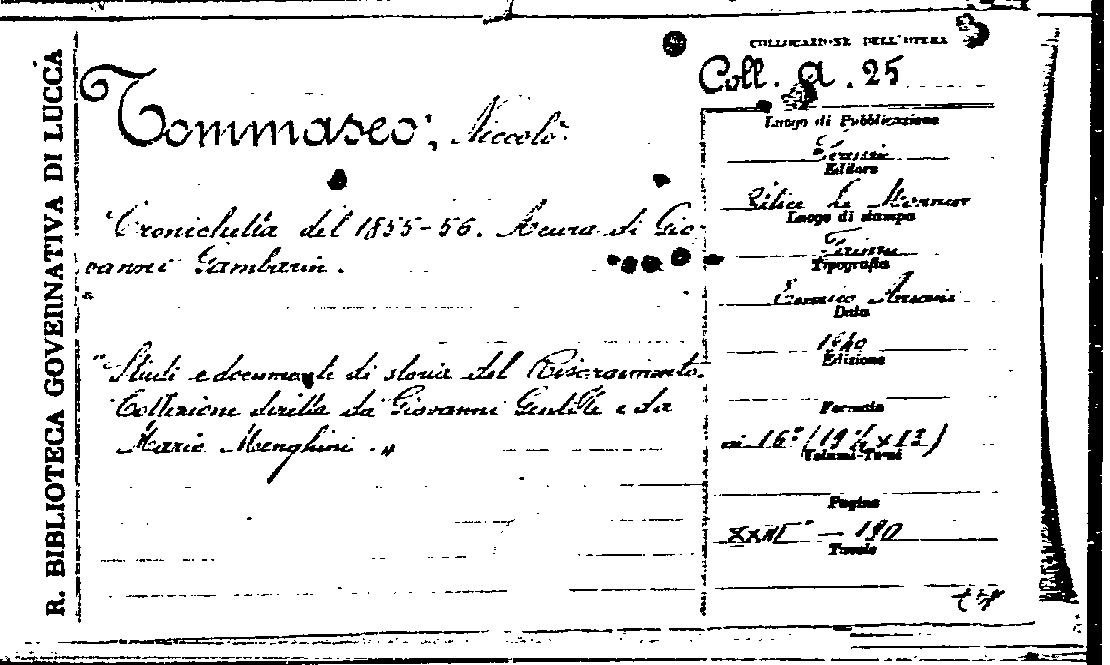 R. BIBLIOTECA GOVERNATIVA DI LUCCA
COLLOCAZIONE DELL'OPERA
Coll. A. 25
Tommaseo, Niccolò
Cronichetta del 1855-56. A cura di Gio-
vanni Gambarin.
"Studi e documenti di storia del Risorgimento.
Collezione diretta da Giovanni Gentile e da
Mario Menghini."
Luogo di Pubblicazione
Firenze
Editore
Felice Le Monnier
Luogo di stampa
Firenze
Tipografia
Enrico Ariani
Data
1940
Edizione
Formato
in 16° (19½ x 12)
Volumi-Tomi
Pagine
190
Tavole